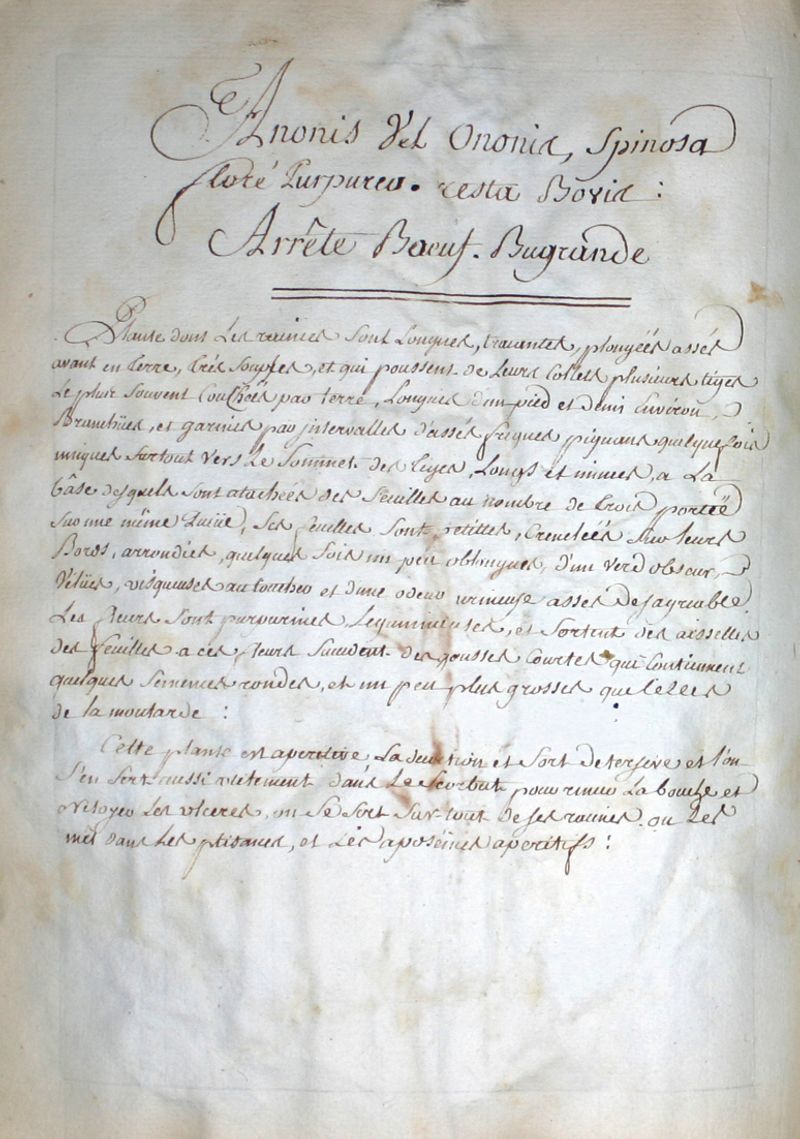 Anonis Vel Ononis, Spinosa
flore Purpureo. resta Bovis :
Arrête Boeuf. Bugrande
Plante dont Les racines Sont Longues, tracantes, plongées assés
avant en terre, très Souples, et qui poussent de Leurs Collets plusieurs tiges
Le plus Souvent Couchées par terre, Longues d'un pied et demi Environ,
Branchües, et garnies par intervalles d'assés piquans quelques fois
uniques Surtout vers Le Sommet des tiges, Longs et minces, a La
bâse desquels Sont atachées des feuilles au nombre de trois portéé
Sur une même Queüe, Ses feuilles Sont petites, Crenelées Sur leurs
Bords, arrondies, quelques fois un peu oblongues, d'un verd obscur,
Velües, visqueuses au toucher et d'une odeur urineuse assés desagreable.
Les fleurs Sont purpurines, Legumineuses, et Sortent des aisselles
des feuilles a ces fleurs Succedent des gousses Courtes qui Contiennent
quelques Semences rondes, et un peu plus grosses que Celles
de la moutarde :
Cette plante est aperitive La decoction est fort detersive et l'on
S'en Sert aussi dans Le Scorbut pour rincer La bouche et
Netoyer Les ulceres, on Se Sert Sur-tout de Ses racines on Les
met dans Les ptisanes, et Les aposemes aperitifs :